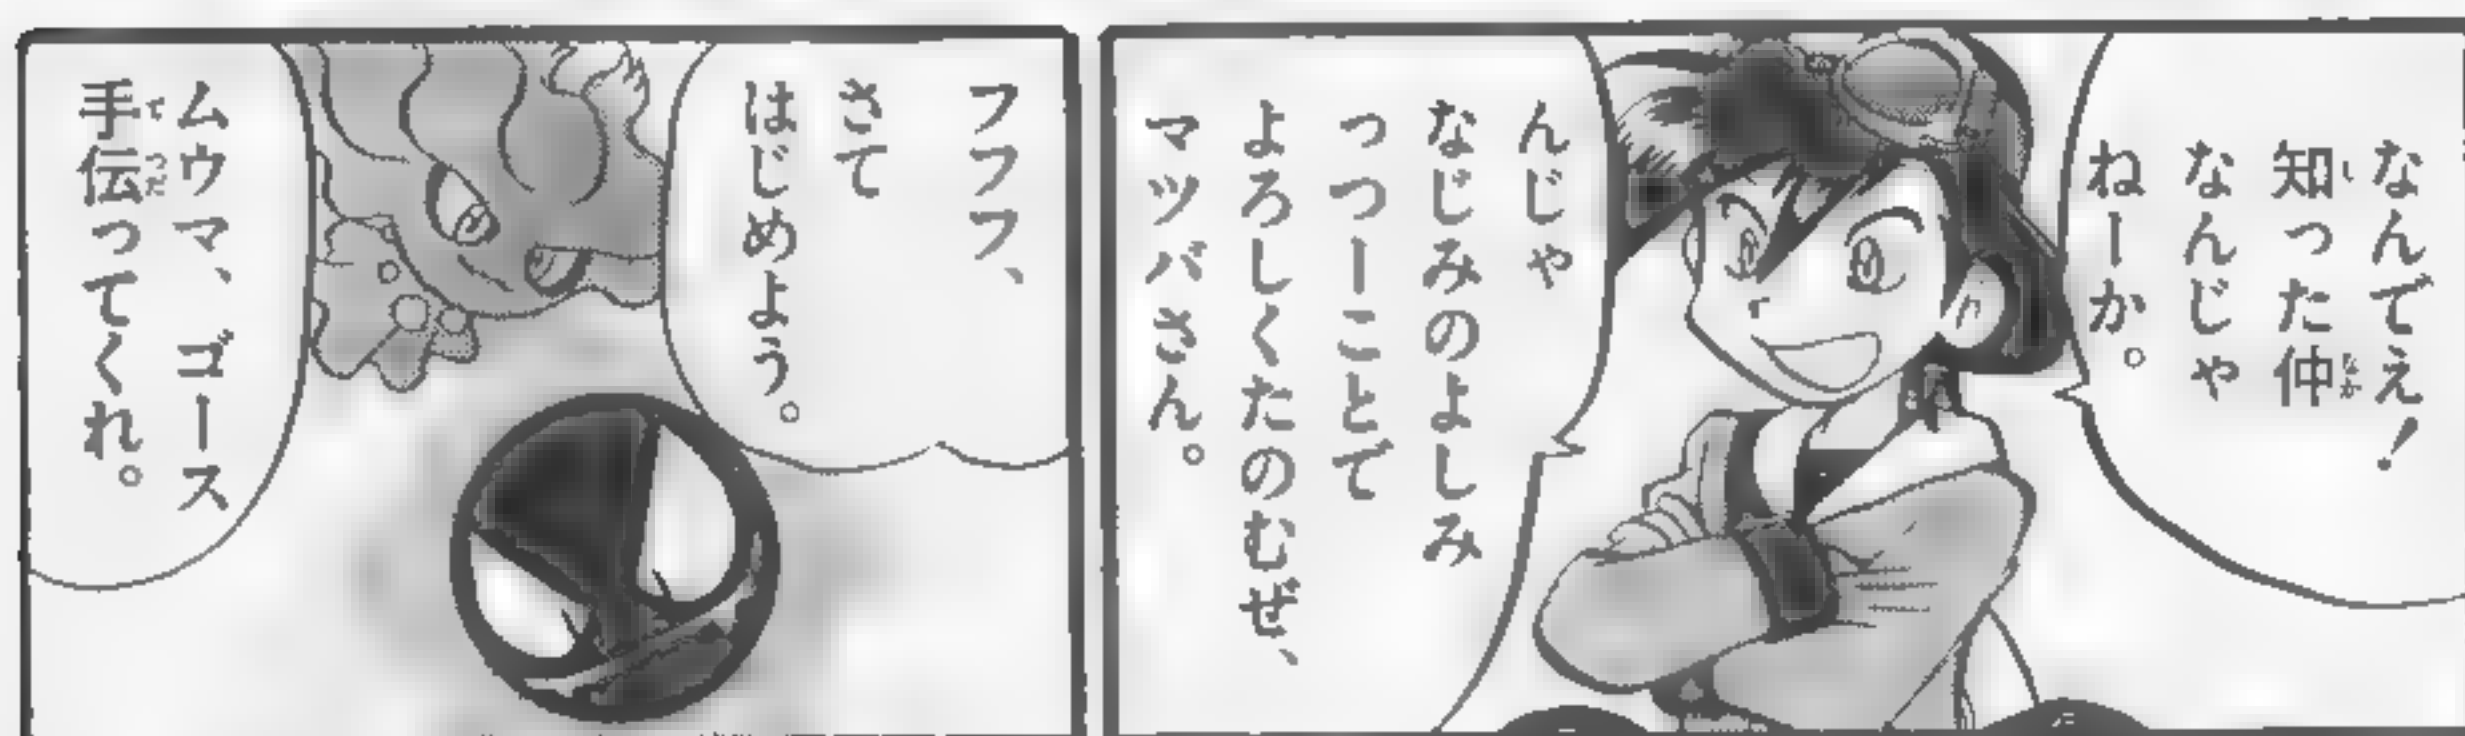 なんでえ！
知った仲
なんじゃ
ねーか。
んじゃ
なじみのよしみ
っつーことで
よろしくたのむぜ、
マツバさん。
フフフ、
さて
はじめよう。
ムウマ、ゴース
手伝ってくれ。